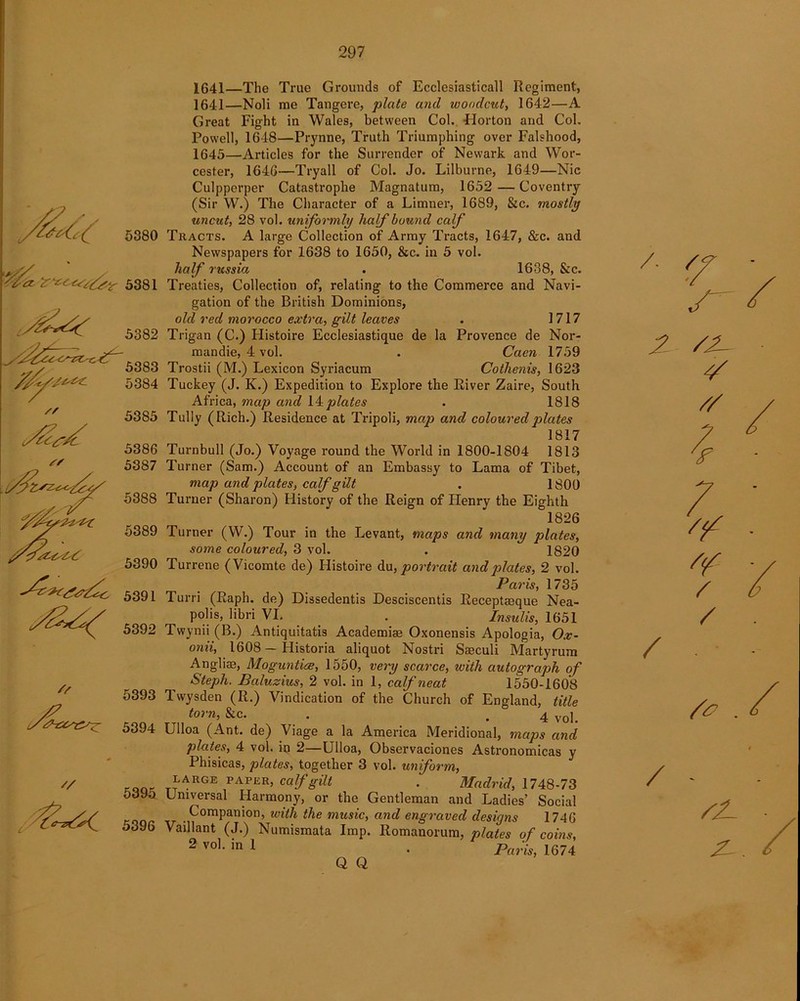 297
1641—The True Grounds of Ecclesiasticall Regiment,
1641—Noli me Tangere, plate and woodcut, 1642—A
Great Fight in Wales, between Col. Horton and Col.
Powell, 1648—Prynne, Truth Triumphing over Falshood,
1645—Articles for the Surrender of Newark and Wor-
cester, 1646—Tryall of Col. Jo. Lilburne, 1649—Nic
Culpperper Catastrophe Magnatum, 1652 — Coventry
(Sir W.) The Character of a Limner, 1689, &c. mostly
uncut, 28 vol. uniformly half bound calf
5380 Tracts. A large Collection of Army Tracts, 1647, &c. and
Newspapers for 1638 to 1650, &c. in 5 vol.
half russia . 1638, &c.
5381 Treaties, Collection of, relating to the Commerce and Navi-
gation of the British Dominions,
old red morocco extra, gilt leaves . 1717
5382 Trigan (C.) Histoire Ecclesiastique de la Provence de Nor-
mandie, 4 vol. . Caen 1759
5383 Trostii (M.) Lexicon Syriacum Cothenis, 1623
5384 Tuckey (J. K.) Expedition to Explore the River Zaire, South
Africa, map and 14 plates . 1818
5385 Tully (Rich.) Residence at Tripoli, map and coloured plates
1817
5386 Turnbull (Jo.) Voyage round the World in 1800-1804 1813
5387 Turner (Sam.) Account of an Embassy to Lama of Tibet,
map and plates, calf gilt . 1800
5388 Turner (Sharon) History of the Reign of Henry the Eighth
1826
5389 Turner (W.) Tour in the Levant, maps and many plates,
some coloured, 3 vol. . 1820
5390 Turrene (Vicomte de) Histoire du, portrait and plates, 2 vol.
Paris, 1735
5391 Turri (Raph. de) Dissedentis Desciscentis Receptæque Nea-
polis, libri VI. . Insulis, 1651
5392 Twynii (B.) Antiquitatis Academiæ Oxonensis Apologia, Ox-
onii, 1608 – Historia aliquot Nostri Sæculi Martyrum
Angliæ, Moguntiæ, 1550, very scarce, with autograph of
Steph. Baluzius, 2 vol. in 1, calf neat 1550-1608
5393 Twysden (R.) Vindication of the Church of England, title
torn, &c. . . 4 vol.
5394 Ulloa (Ant. de) Viage a la America Meridional, maps and
plates, 4 vol. in 2—Ulloa, Observaciones Astronomicas y
Phisicas, plates, together 3 vol. uniform,
LARGE PAPER, calf gilt . Madrid, 1748-73
5395 Universal Harmony, or the Gentleman and Ladies' Social
Companion, with the music, and engraved designs 1746
5396 Vaillant (J.) Numismata Imp. Romanorum, plates of coins,
2 vol. in 1 . Paris, 1674
Q Q